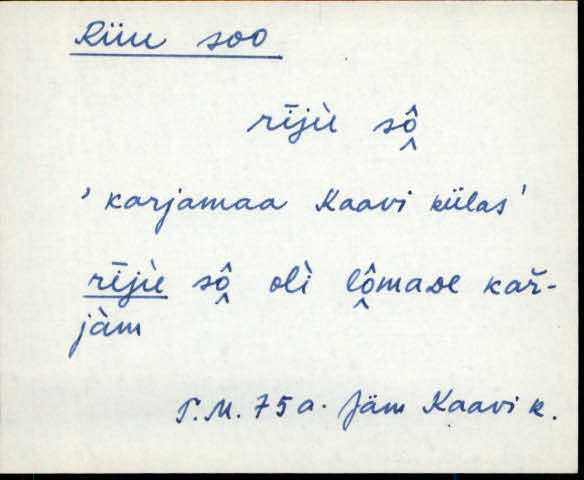 Riiu soo
rījù sô̭
'karjamaa Kaavi külas'
rījù sô̭ olì lô̭maᴅe kař-
jàm
T.M. 75 a. Jäm Kaavi k.